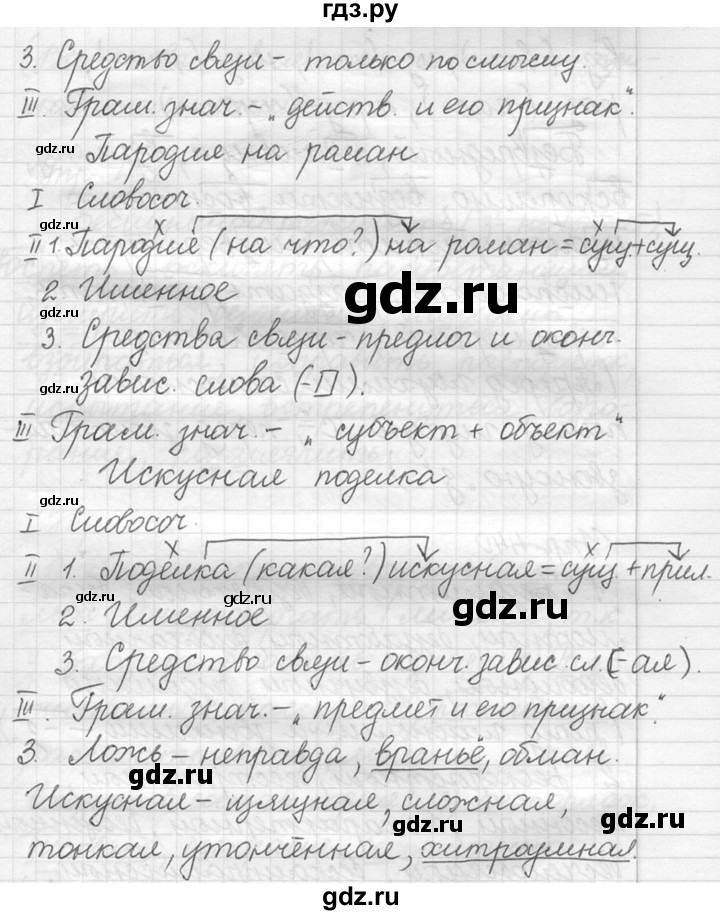 гдз.ру
3. Средство связи – только по смыслу.
III. Грам. знач. – „действ. и его признак".
gdz.ru
Пародия на роман
I Словосоч.
gdz.ru
II 1. Пародия (на что?) на роман = сущ + сущ.
2 Именное
gdz.ru
3. Средства связи – предлог и оконч.
gdz.ru
завис. слова (-□).
III Грам. знач. – „субъект + объект"
Искусная поделка
gdz.ru
I Словосоч.
II 1. Поделка (какая?) искусная = сущ + прил.
gdz.ru
gdz.ru
gdz.ru
2. Именное
3. Средство связи – оконч. завис. сл. (-ая).
III. Грам. знач. – „предмет и его признак".
gdz.ru
3. Ложь – неправда, враньё, обман.
gdz.ru
Искусная – изящная, сложная,
gdz.ru
тонкая, утончённая, хитроумная.
gdz.ru
gdz.ru